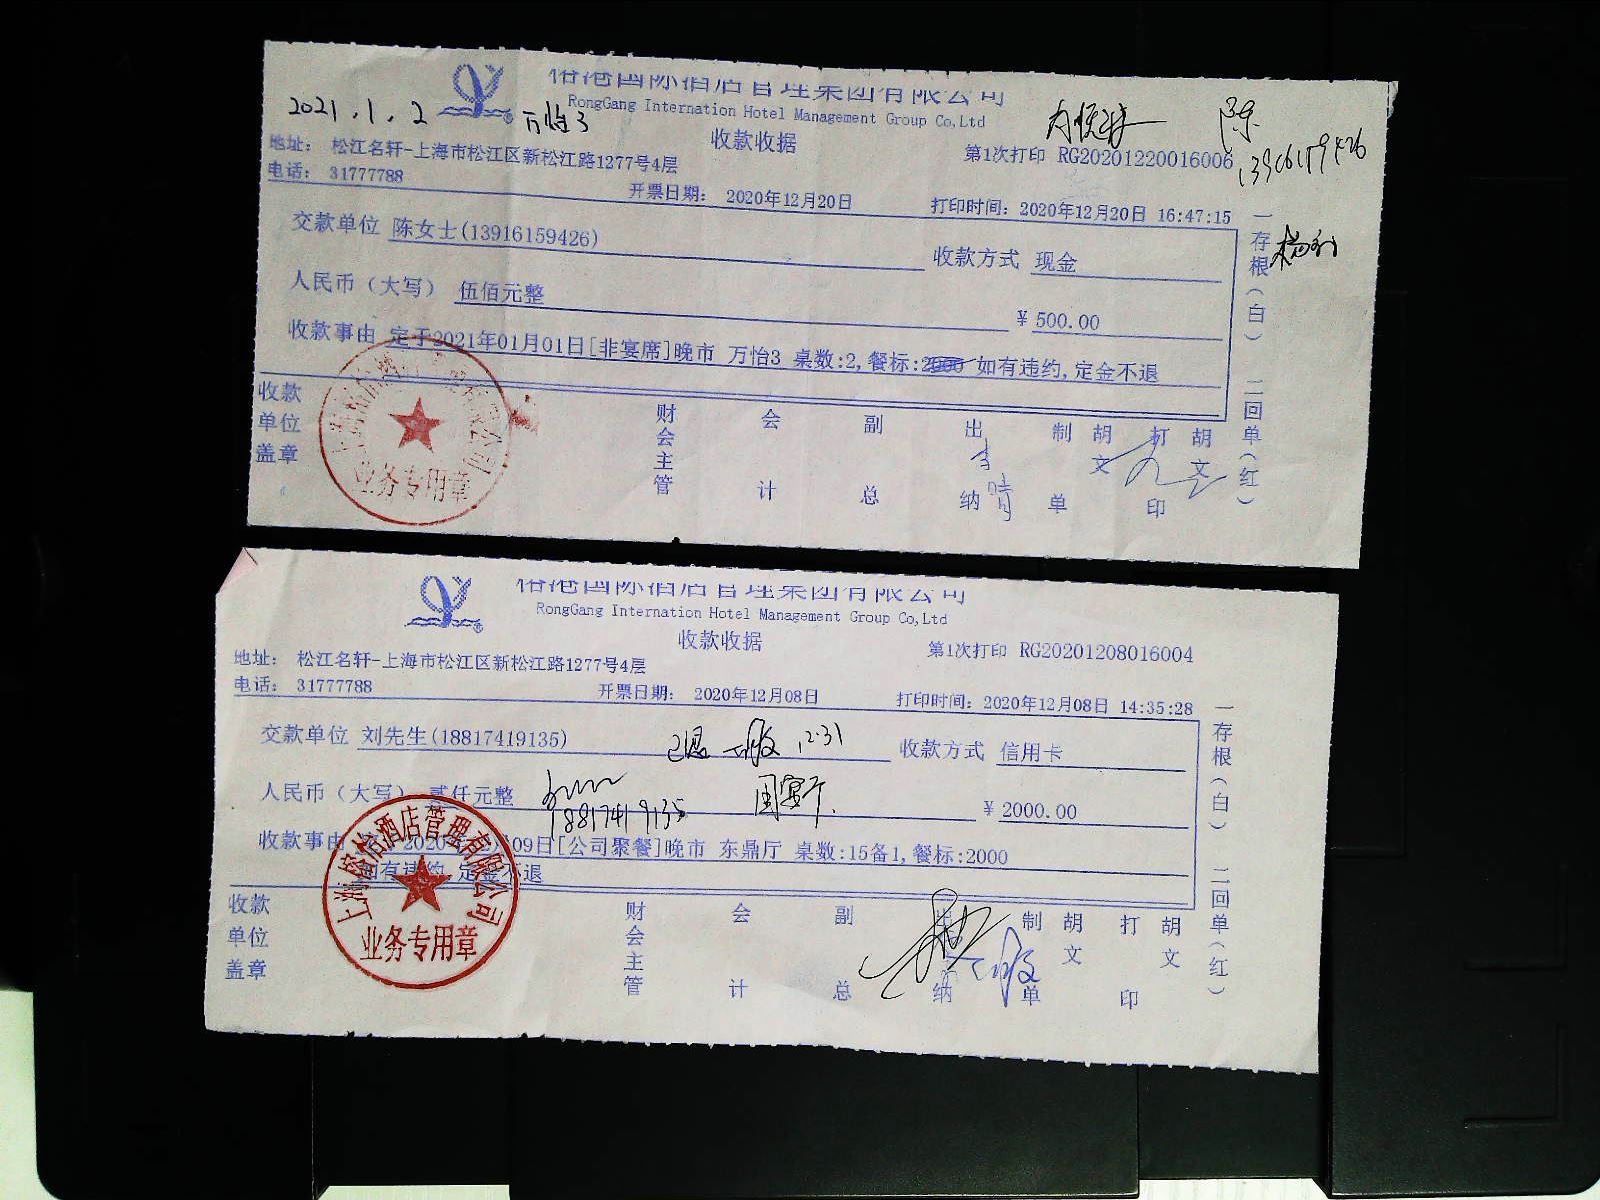 国际酒店管理集团有限公司
RongGang Internation Hotel Management Group Co,Ltd
2021.1.2
万怡3
收款收据
地址: 松江名轩-上海市松江区新松江路1277号4层
第1次打印 RG20201220016006
电话: 31777788
开票日期: 2020年12月20日
打印时间: 2020年12月20日 16:47:15
交款单位 陈女士(13916159426)
收款方式 现金
人民币（大写） 伍佰元整
¥ 500.00
收款事由 定于2021年01月01日[非宴席]晚市 万怡3 桌数:2,餐标:2000 如有违约,定金不退
收款单位盖章
财会主管
会计
副总
出纳
制单
胡文
打印
胡文
业务专用章
一存根（白） 二回单（红）
国际酒店管理集团有限公司
RongGang Internation Hotel Management Group Co,Ltd
收款收据
地址: 松江名轩-上海市松江区新松江路1277号4层
第1次打印 RG20201208016004
电话: 31777788
开票日期: 2020年12月08日
打印时间: 2020年12月08日 14:35:28
交款单位 刘先生(18817419135)
12.31
收款方式 信用卡
人民币（大写） 贰仟元整
18817419135
国宴厅
¥ 2000.00
收款事由 09日[公司聚餐]晚市 东鼎厅 桌数:15备1,餐标:2000
如有违约,定金不退
收款单位盖章
财会主管
会计
副总
出纳
制单
胡文
打印
胡文
业务专用章
一存根（白） 二回单（红）